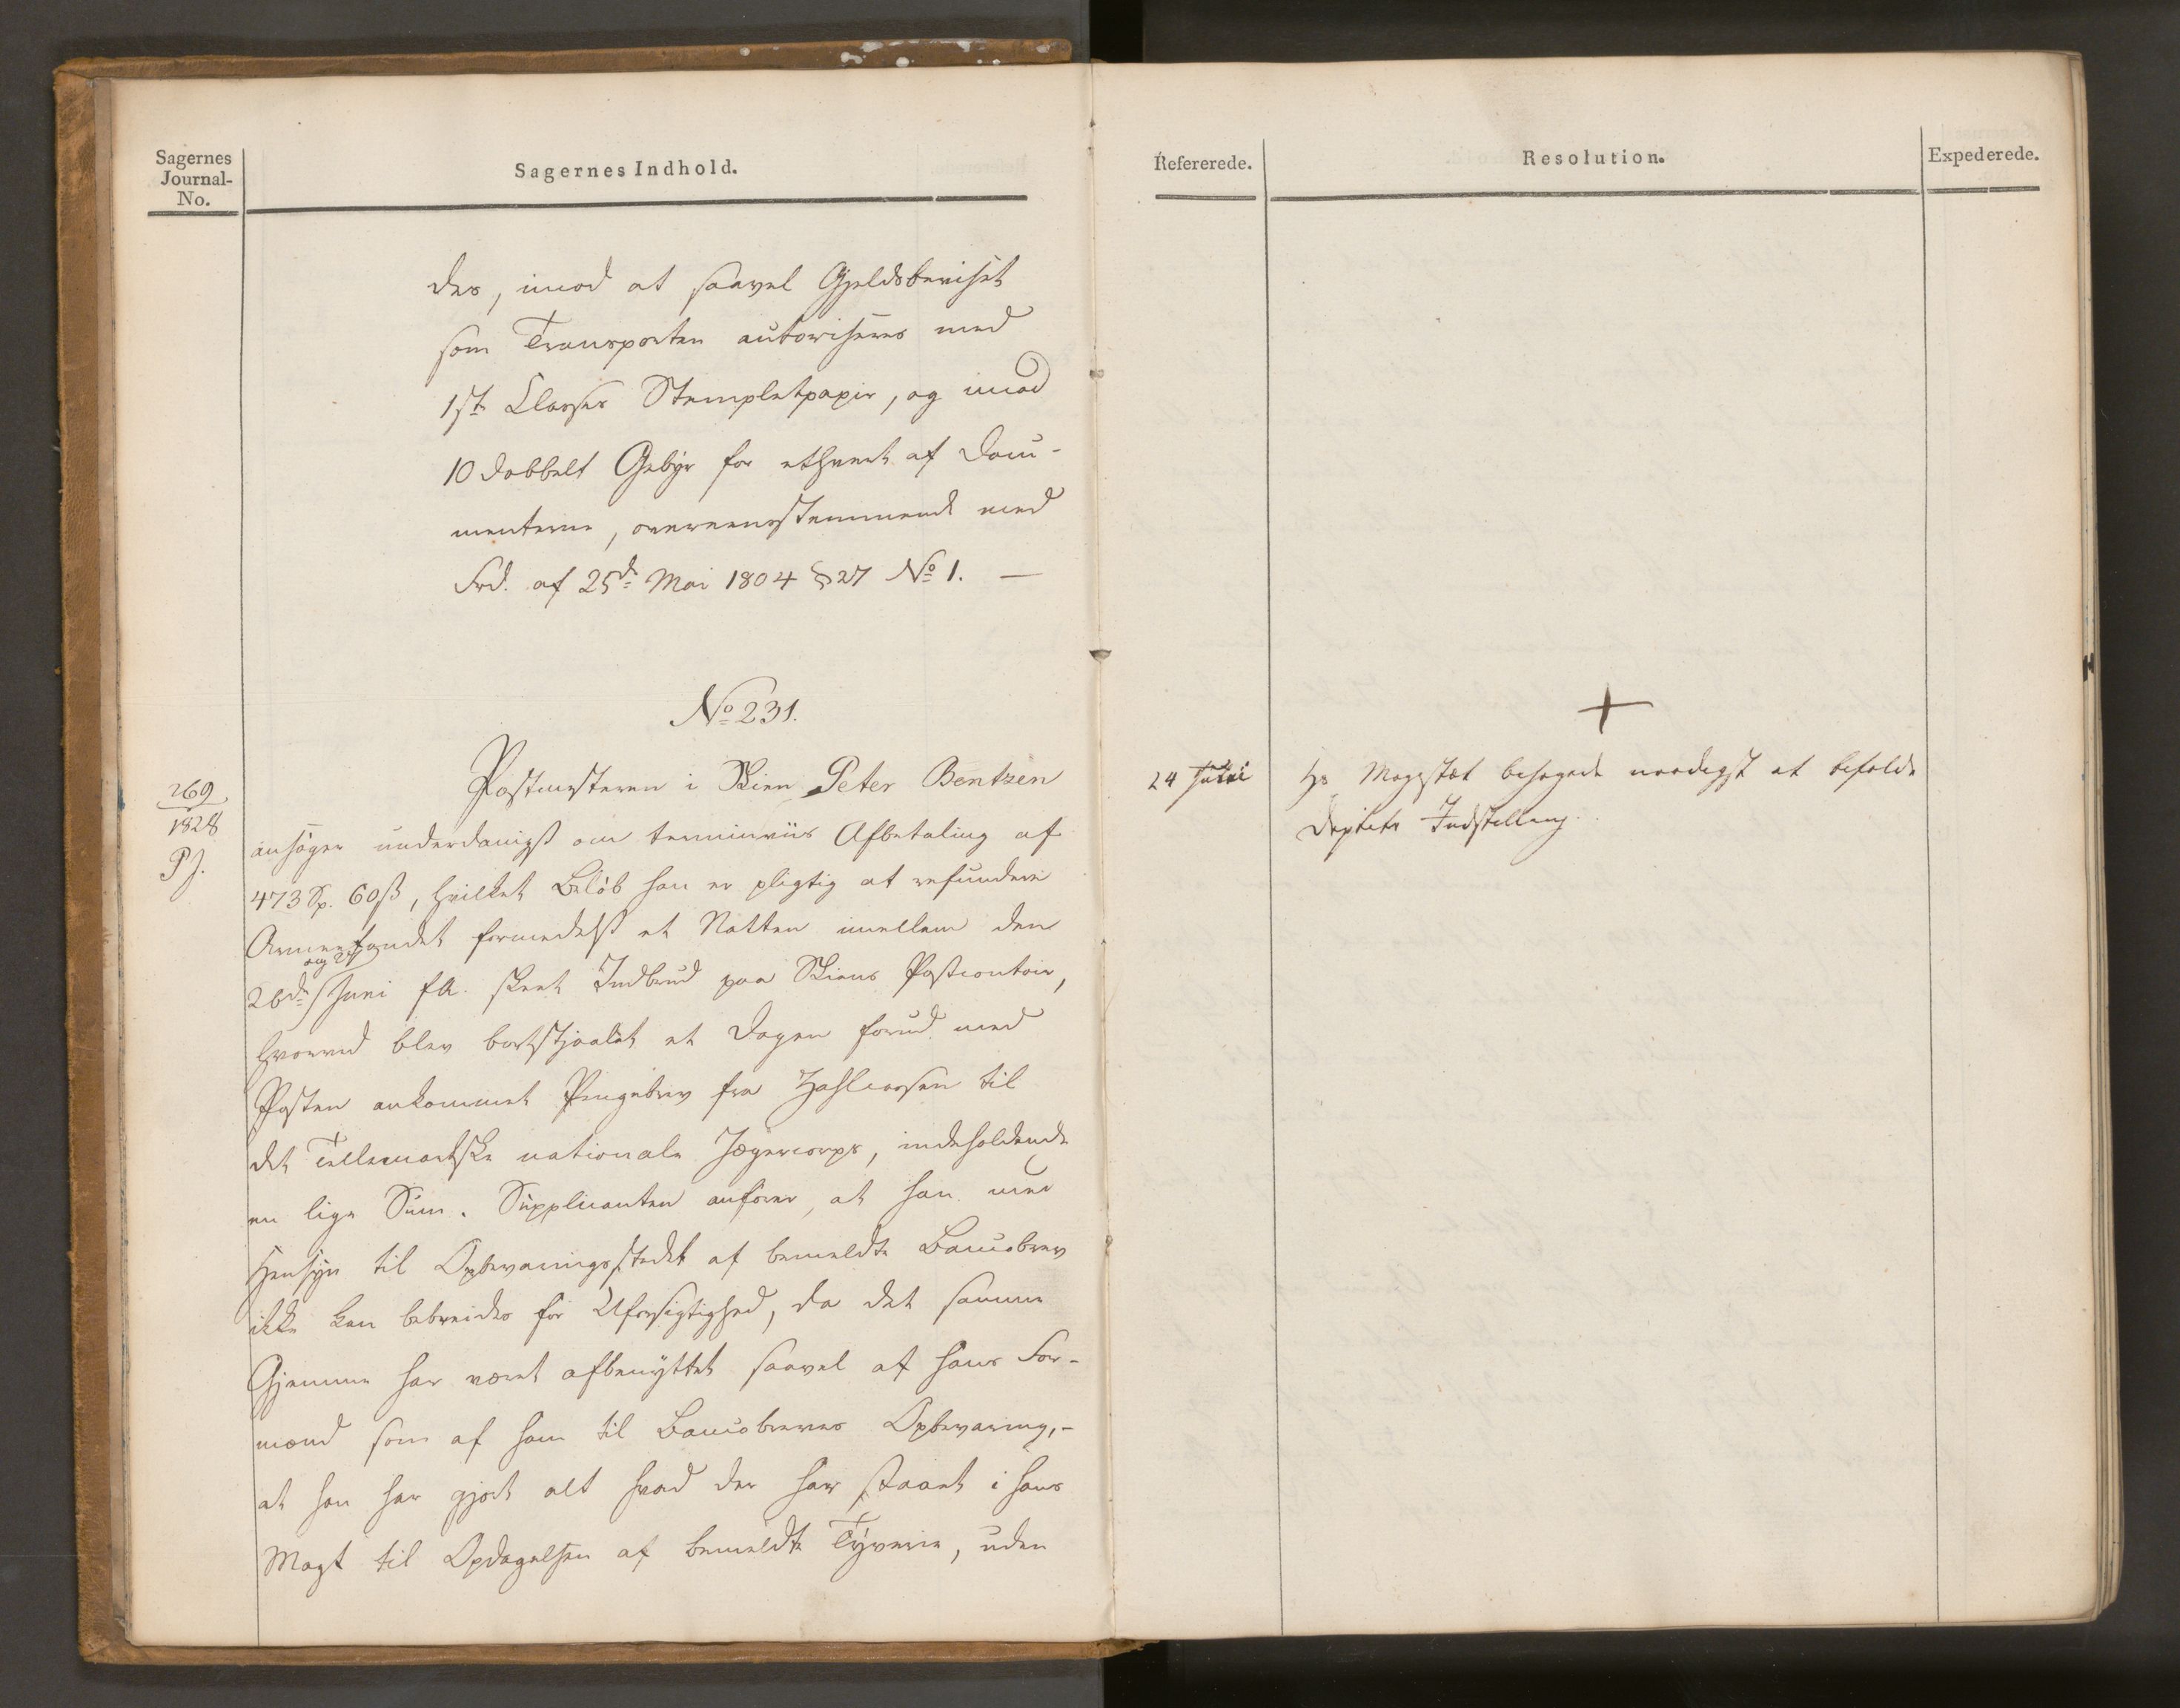 Sagernes
Journal-
No.
Sagernes Indhold.
des, imod at saavel Gjeldsbeviset
som Transporten autoriseres med
1ste Classes Stempletpapir, og imod
10 dobbelt Gebyr for ethvert af Docu-
menterne, overeensstemmende med
Frd. af 25de Mai 1804 § 27 No 1. —
No 231.
269
1828
PJ.
Postmesteren i Skien Peter Bentzen
ansøger underdanigst om terminviis Afbetaling af
473 Sp. 60 ß, hvilket Beløb han er pligtig at refundere
Armeefondet formedelst et Natten imellem den
og 27
26de Juni f.A. skeet Indbrud paa Skiens Postcontoir,
hvorved blev bortstjaalet et Dagen forud med
Posten ankommet Pengebrev fra Zahlcassen til
det Tellemarkske nationale Jægercorps, indeholdende
en lige Sum. Supplicanten anfører, at han med
Hensyn til Opbevaringsstedet af bemeldte Bancobrev
ikke kan bebreides for Uforsigtighed, da det samme
Gjemme har været afbenyttet saavel af hans For-
mænd som af ham til Bancobreves Opbevaring,-
at han har gjort alt hvad der har staaet i hans
Magt til Opdagelsen af bemeldte Tyverie, uden
Refererede.
Resolution.
Expederede.
+
24 Juni
Hs Majestæt behagede naadigst at bifalde
Deptets Indstilling.